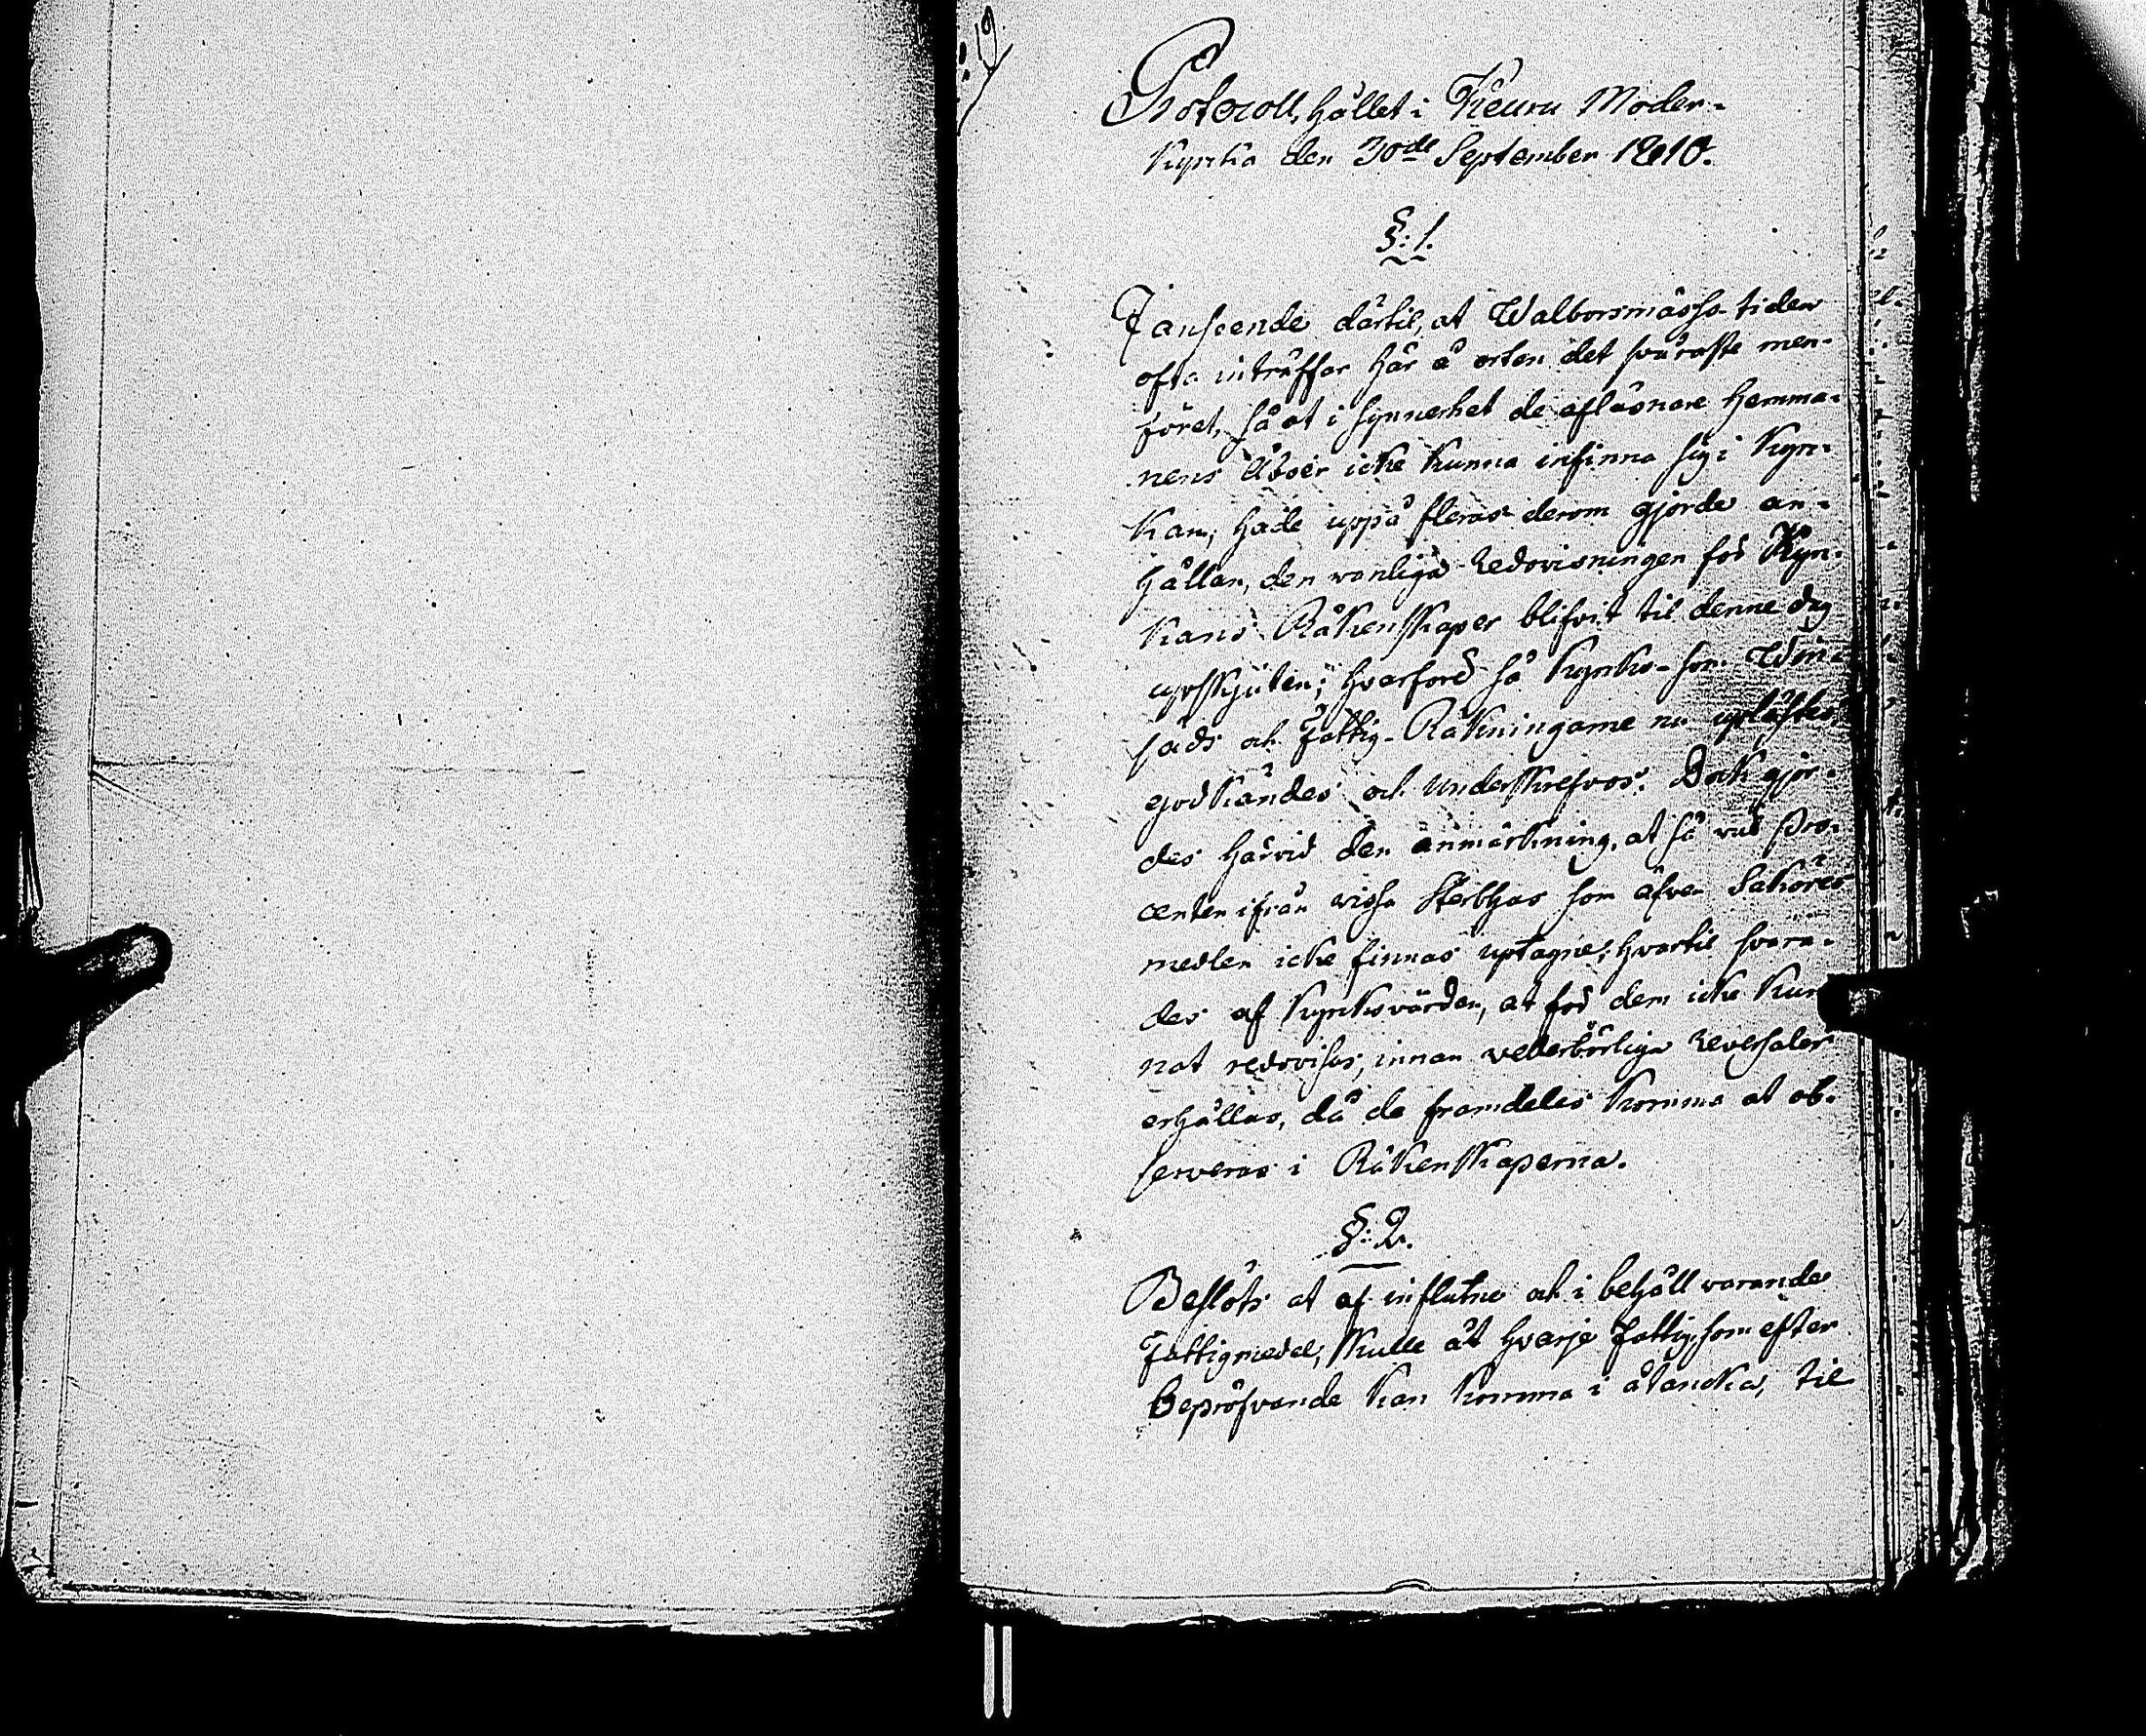 19.
Protocoll, hållet i Keuru Moder-
Kyrka den 30de September 1810.
§: 1.
I anseende därtil, at Walborsmässo-tiden
ofta inträffar här å orten det svåraste men-
föret, så at i synnerhet de aflägsnare Hemma-
nens Åboer icke kunna infinna sig i Kyr-
kan, hade uppå fleras derom gjorde an-
hållan, den vanliga Redovisningen för Kyr-
kans Räkenskaper blifvit til denne dag
upskjuten; hvarföre så Kyrko- som Win-
säds och Fattig-Räkningarne nu uplästes
godkändes och underskrefvos. Dock gjor-
des härvid den anmärkning, at så väl Pro-
centen ifrån vissa Sterbhus som äfven Saköres
medlen icke finnas uptagne; hvartil svara-
des af Kyrkovärden, at för dem icke kun-
nat redovisas, innan vederbörliga Reversaler
erhållas, då de framdeles komma at ob-
serveras i Räkenskaperna.
§: 2.
Beslöts at af influtne och i behåll varande
Fattigmedel, skulle åt hvarje fattig, som efter
bepröfvande kan komma i åtanka, til